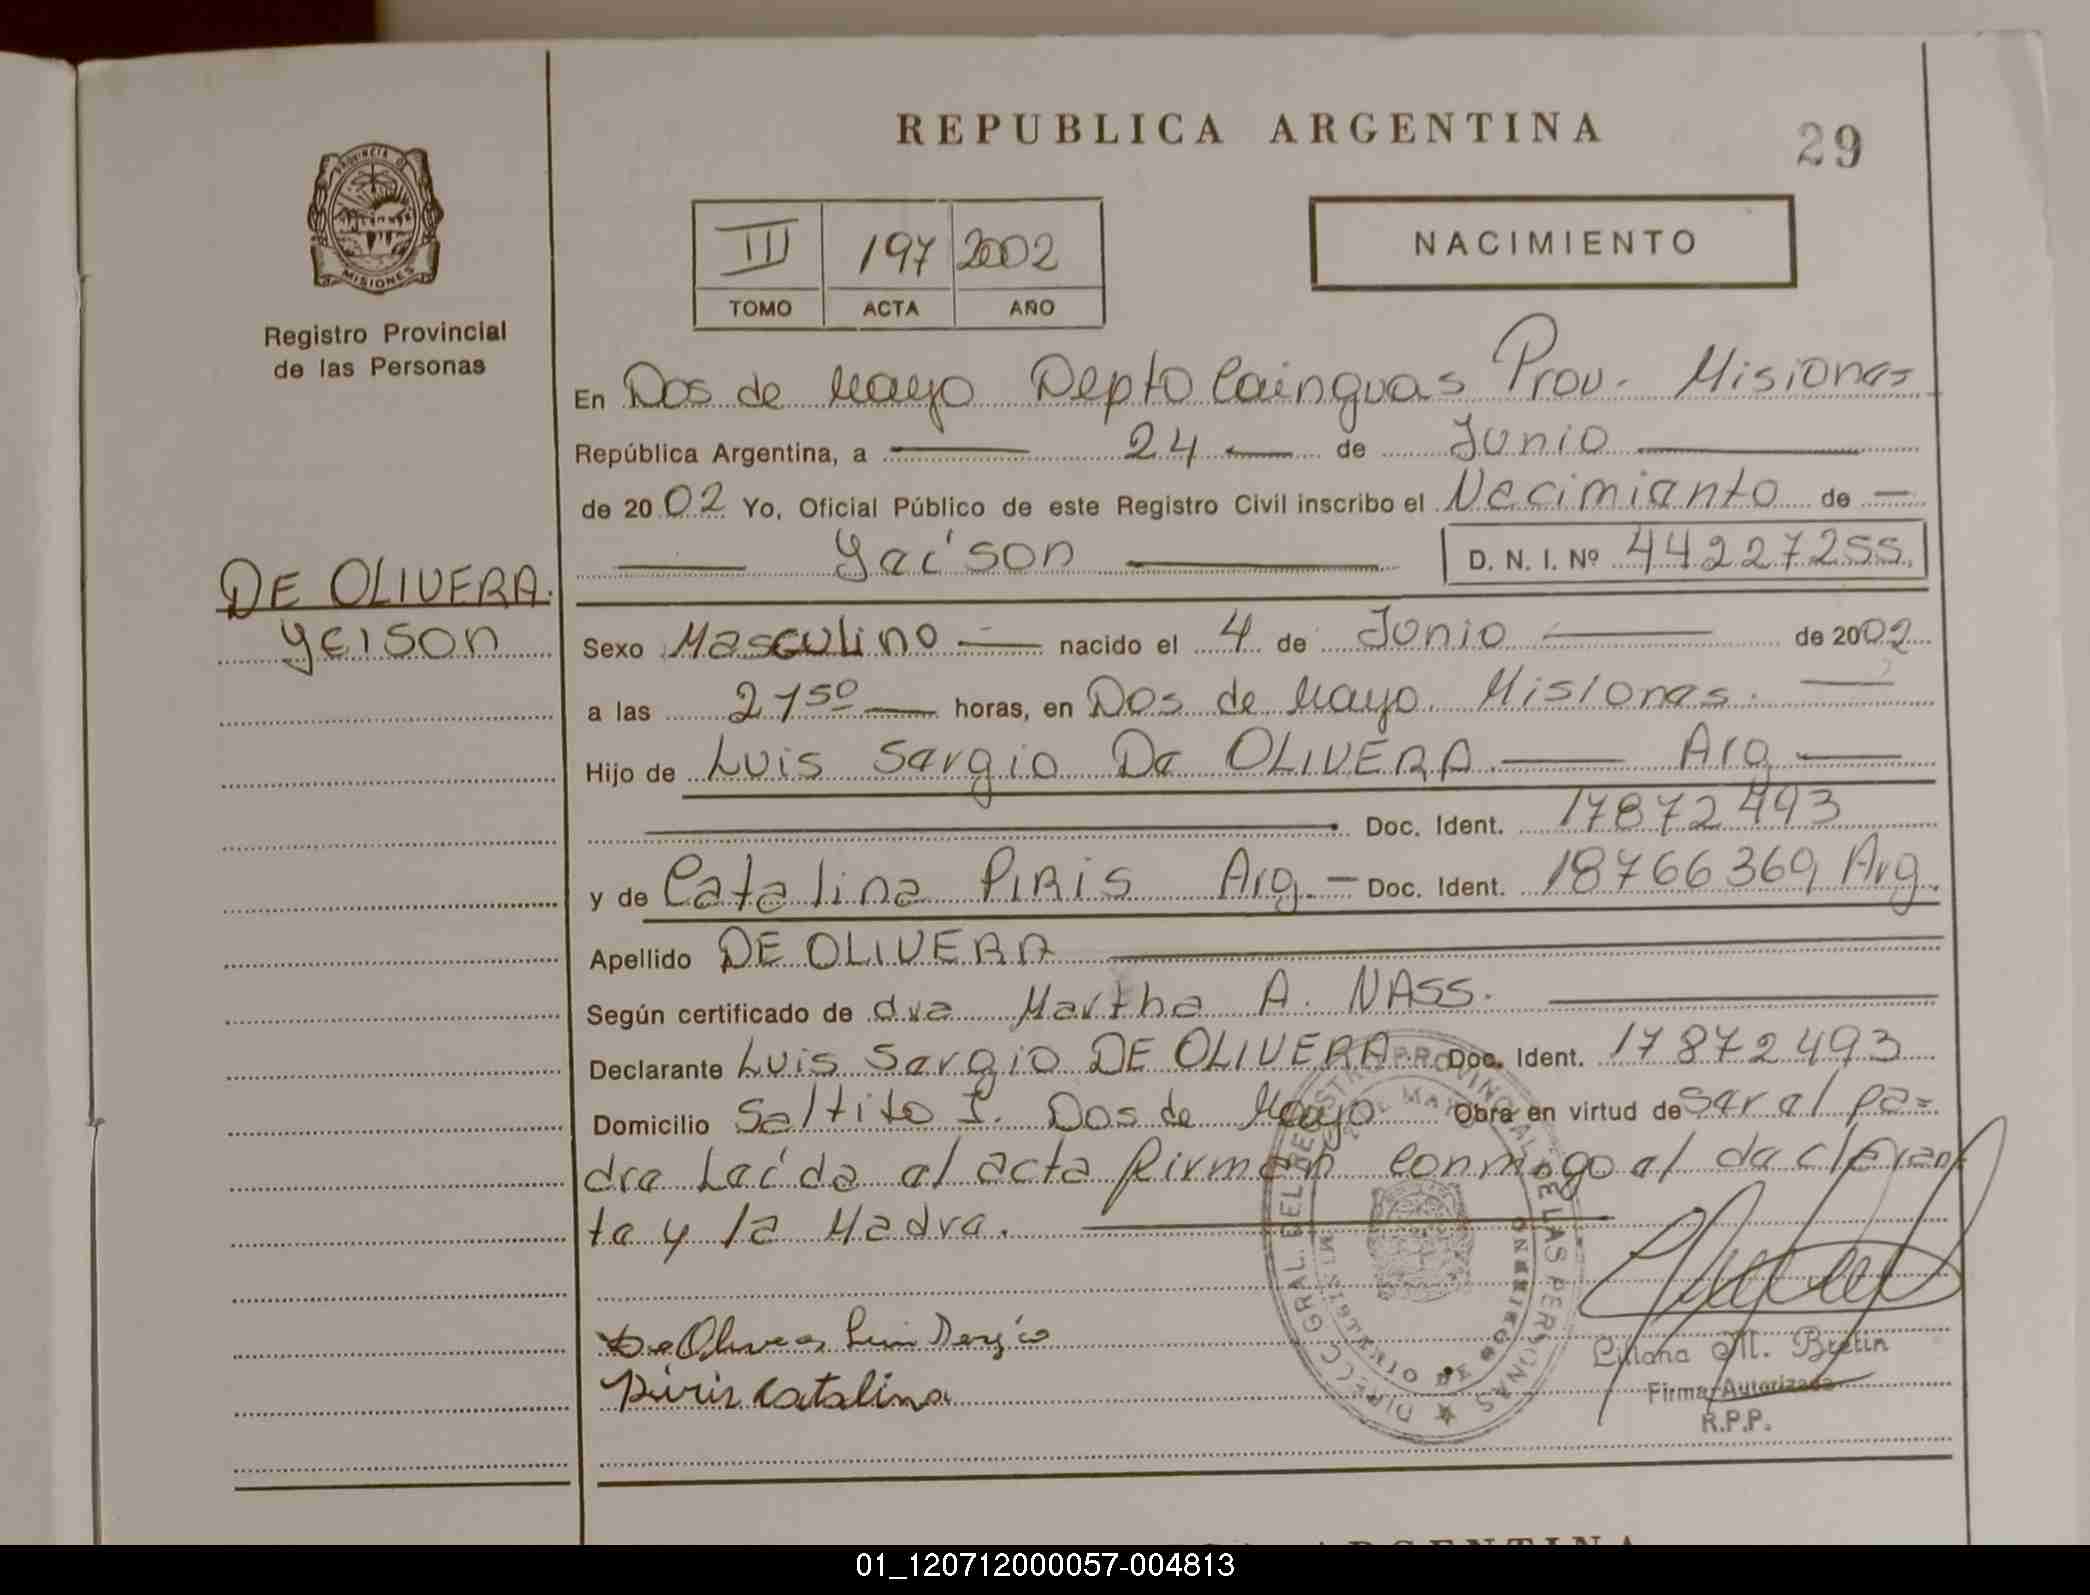 REPUBLICA ARGENTINA
29
PROVINCIA D
MISIONES
Registro Provincial
de las Personas
III 197 2002
TOMO ACTA AÑO
NACIMIENTO
En Dos de Mayo Depto Cainguas Prov. Misiones
República Argentina, a 24 de Junio
de 2002 Yo, Oficial Público de este Registro Civil inscribo el Nacimiento de
Yeíson D. N. I. Nº 44227255
DE OLIVERA.
Yeison
Sexo Masculino nacido el 4 de Junio de 2002
a las 21 50 horas, en Dos de Mayo. Misiones.
Hijo de Luis Sergio De OLIVERA Arg
Doc. Ident. 17872493
y de Catalina PIRIS Arg. Doc. Ident. 18766369 Arg.
Apellido DE OLIVERA
Según certificado de dra Martha A. NASS.
Declarante Luis Sergio DE OLIVERA Doc. Ident. 17872493
Domicilio Saltito I. Dos de Mayo Obra en virtud de ser el pa=
dre Leída el acta firman conmigo el declaran
te y la Madre.
De Olivera Luis Sergio
Piris Catalina
DIRECC. GRAL. DEL REGISTRO PROVINCIAL DE LAS PERSONAS
Liliana M. Bretin
Firma Autorizada
R.P.P.
ARGENTINA
01_120712000057-004813